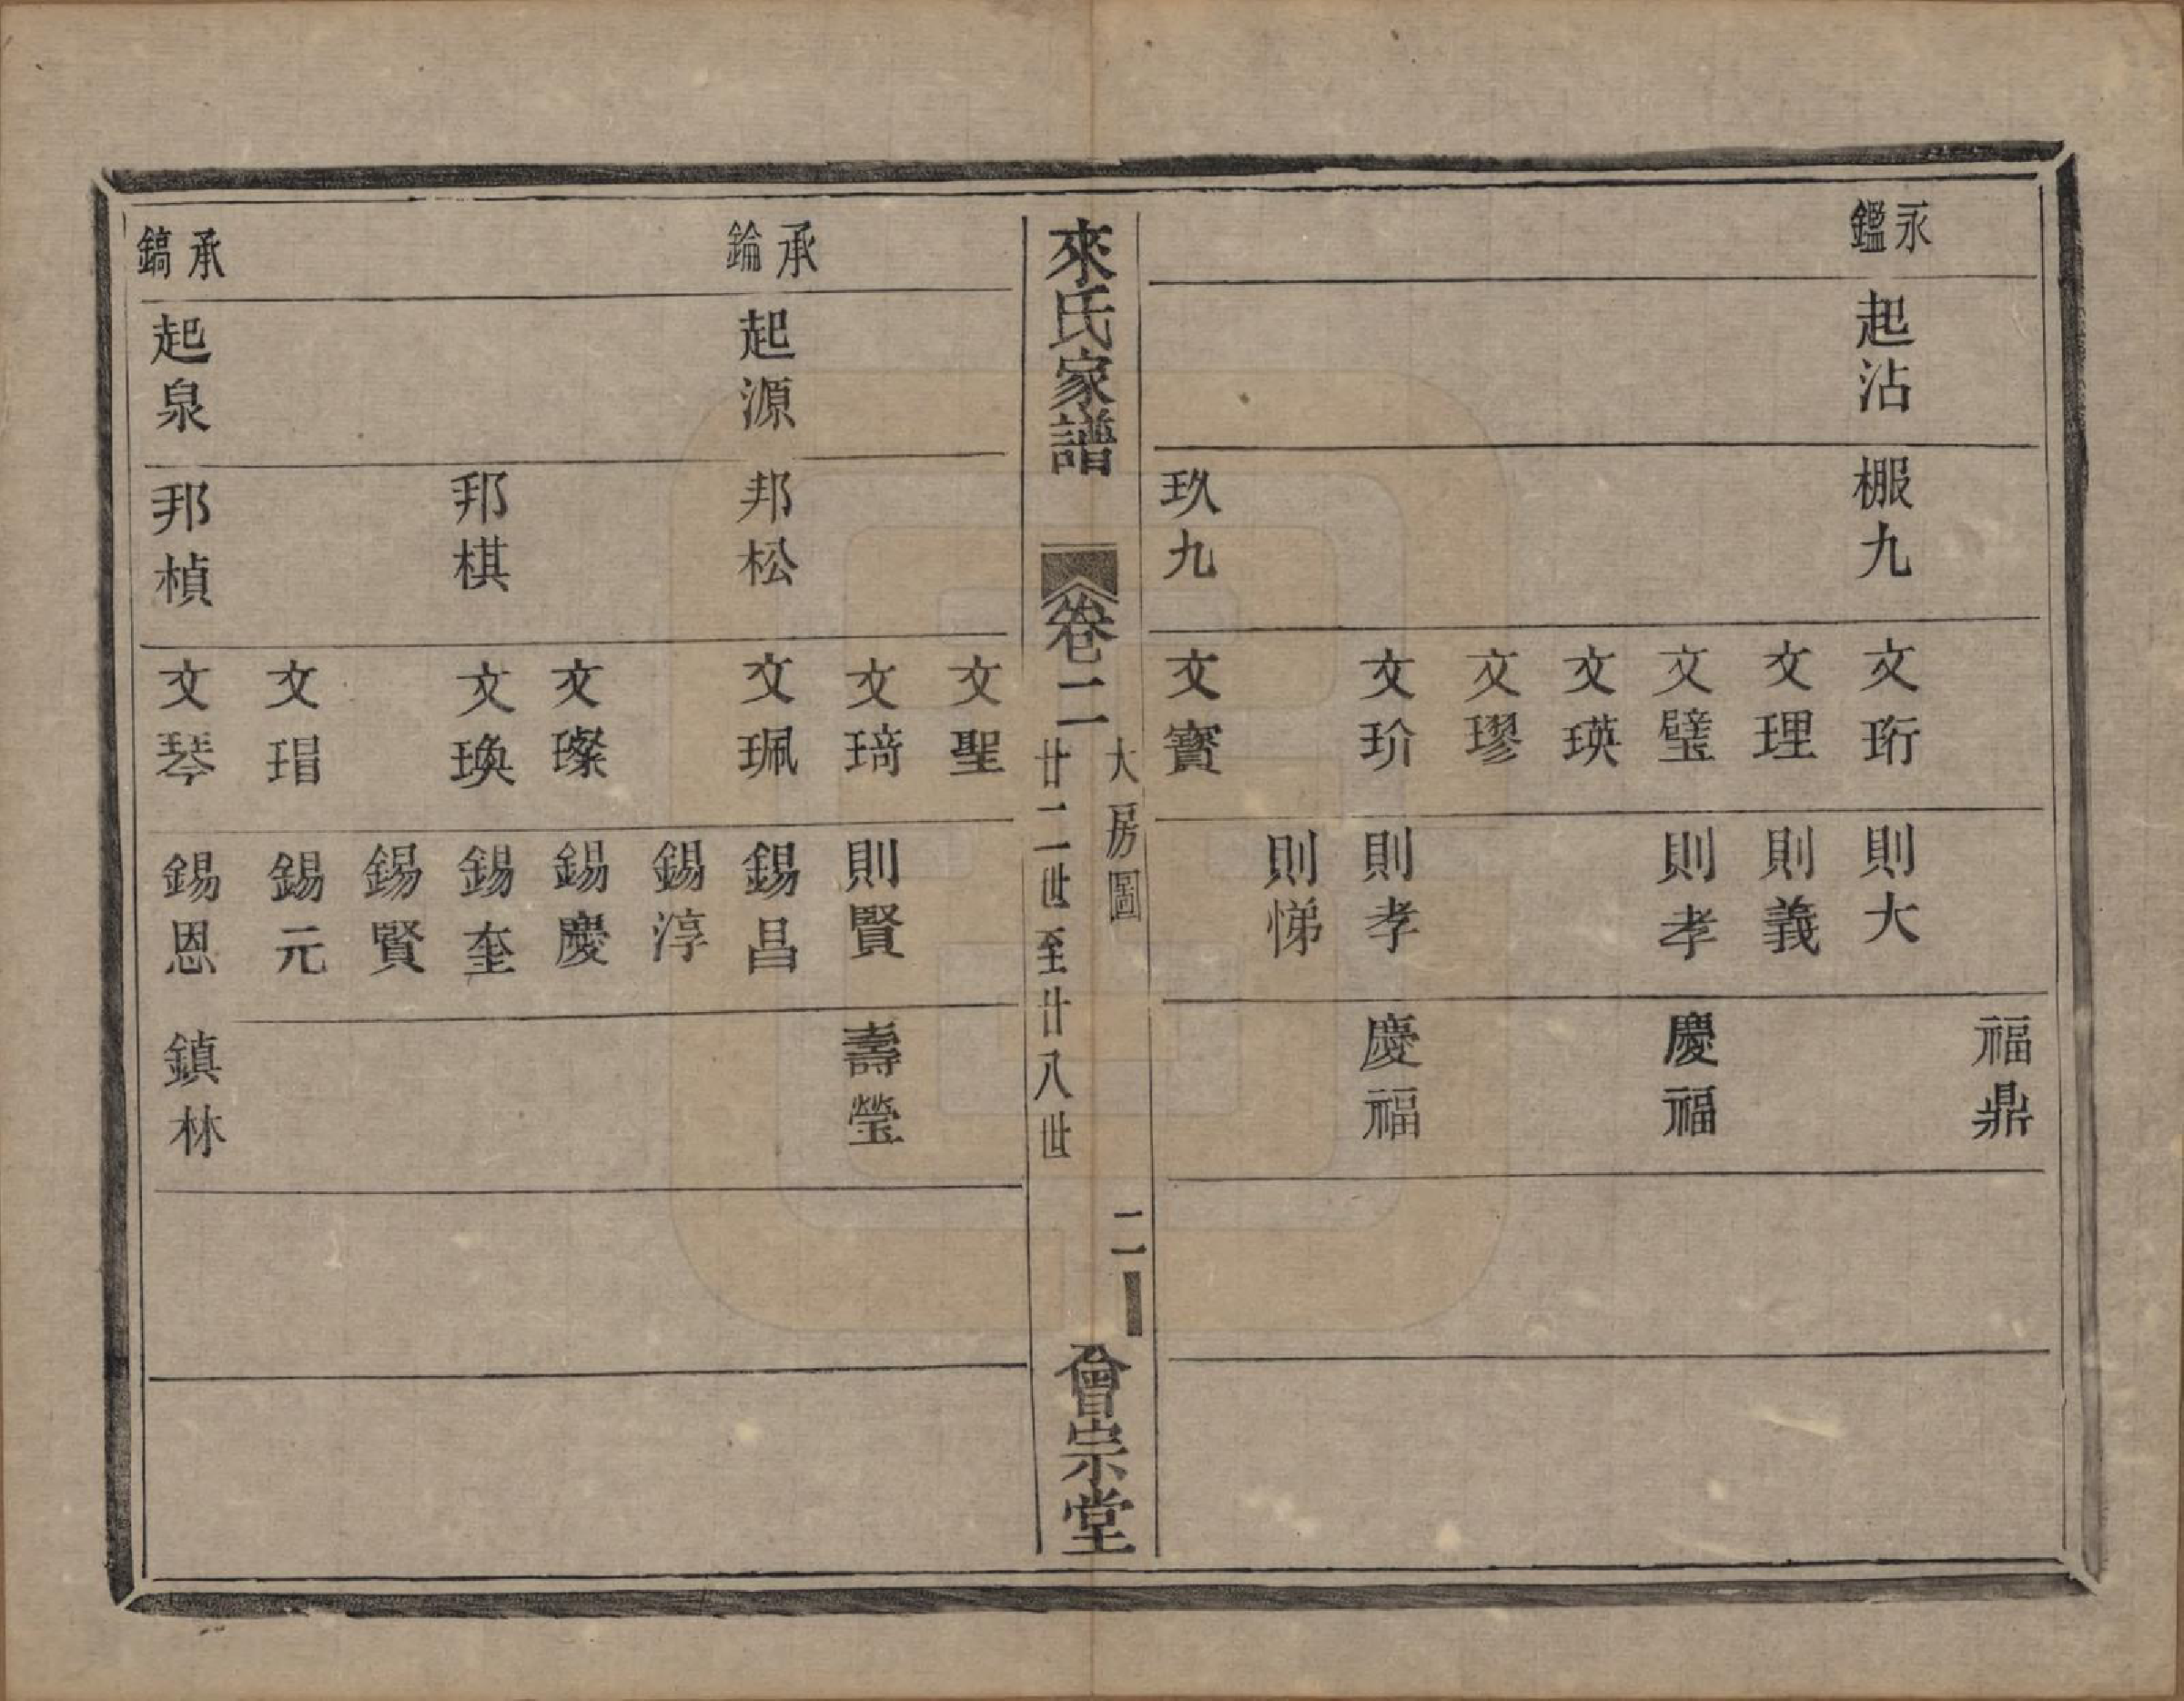 永鑑
起沾
棴九
玖九
文珩
文理
文璧
文瑛
文璆
文玠
文寶
則大
則義
則孝
則孝
則悌
福鼎
慶福
慶福
來氏家譜
卷二
大房圖
廿二世至廿八世
二
會宗堂
承錀
承鎬
起源
起泉
邦松
邦棋
邦楨
文聖
文琦
文珮
文璨
文瑍
文琩
文琴
則賢
錫昌
錫淳
錫慶
錫奎
錫賢
錫元
錫恩
壽瑩
鎮林